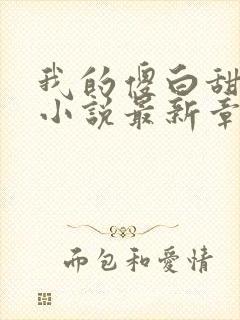 我的傻白甜
小说最新章
而包和愛情